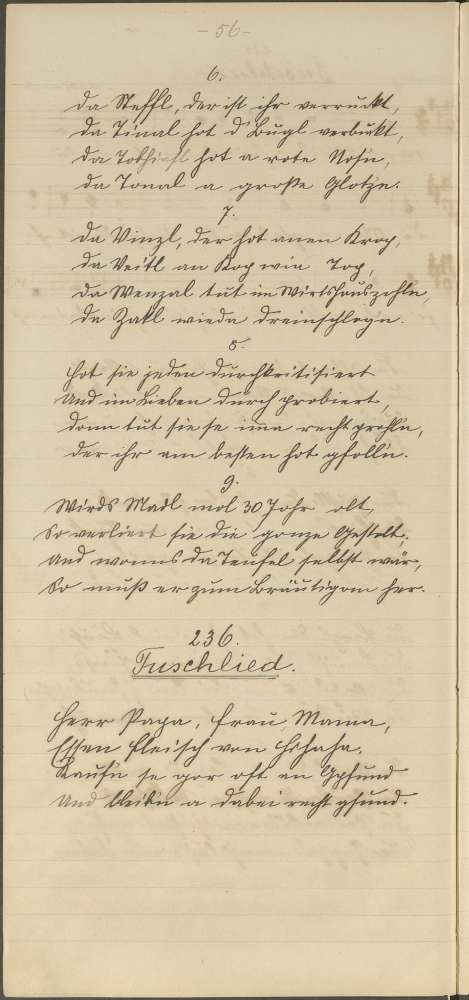 - 56 -
6.
Da Steffl, der ist ihr verruckt,
Da Tinal hot d' Bugl verbukt,
Da hot a rote Nosn,
Da Tonal a große Glotzn.
7.
Da Vinzl, der hot anen Krop,
Da Veitl an Kop wia Top,
Da Wenzal tut im Wirtshaus zohln,
Da Zakl wieda dreinschlogn.
8.
Hot sie jeden durchkritisiert
Und im Lieben durch probiert,
Donn tut sie se imma recht prohln,
der ihr am besten hot gfolln.
9.
Wirds Madl mol 30 Johr olt,
So verliert sie die gonze Gestolt.
Und wonns da Teufel selbst wär,
So muß er zum Bräutigom her.
236.
Tuschlied.
Herr Papa, Frau Mama,
Essen Fleisch von
Kaufn se gor oft an Gpfund
Und bleibn a dabei recht gsund.